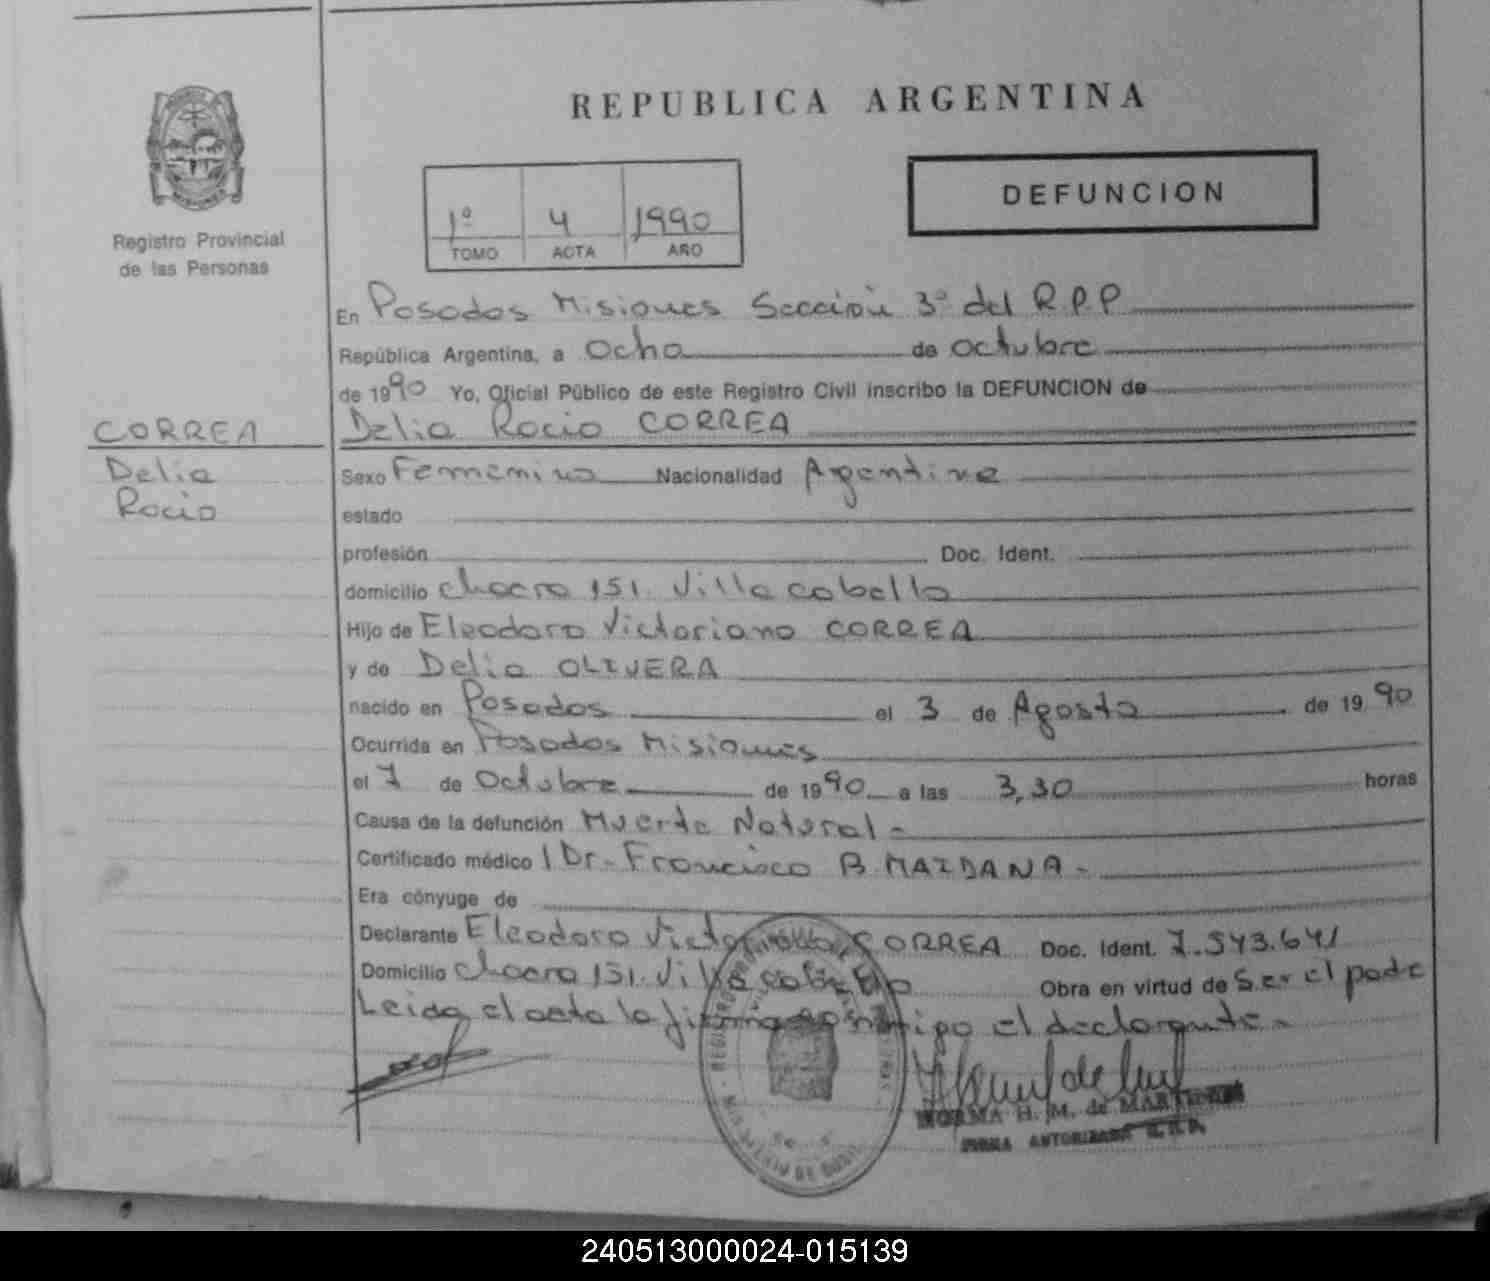 REPUBLICA ARGENTINA
DEFUNCION
1º 4 1990
TOMO ACTA AÑO
Registro Provincial
de las Personas
En Posadas Misiones Sección 3º del R.P.P
República Argentina, a Ocho de octubre
de 1990 Yo, Oficial Público de este Registro Civil inscribo la DEFUNCION de
Delia Rocio CORREA
CORREA
Delia
Rocio
Sexo Femenino Nacionalidad Argentina
estado
profesión Doc. Ident.
domicilio chacra 151. Villa cabello
Hijo de Eleodoro Victoriano CORREA
y de Delia OLIVERA
nacido en Posadas el 3 de Agosto de 1990
Ocurrida en Posadas Misiones
el 7 de Octubre de 1990 a las 3,30 horas
Causa de la defunción Muerte Natural -
Certificado médico Dr. Francisco B. MAIDANA -
Era cónyuge de
Declarante Eleodoro Victoriano CORREA Doc. Ident. 7.543.641
Domicilio chacra 151. Villa cabello Obra en virtud de Ser el padre
Leida el acta la firma conmigo el declarante -
NORMA H. M. de MARTINEZ
FIRMA AUTORIZADA R.P.P.
240513000024-015139